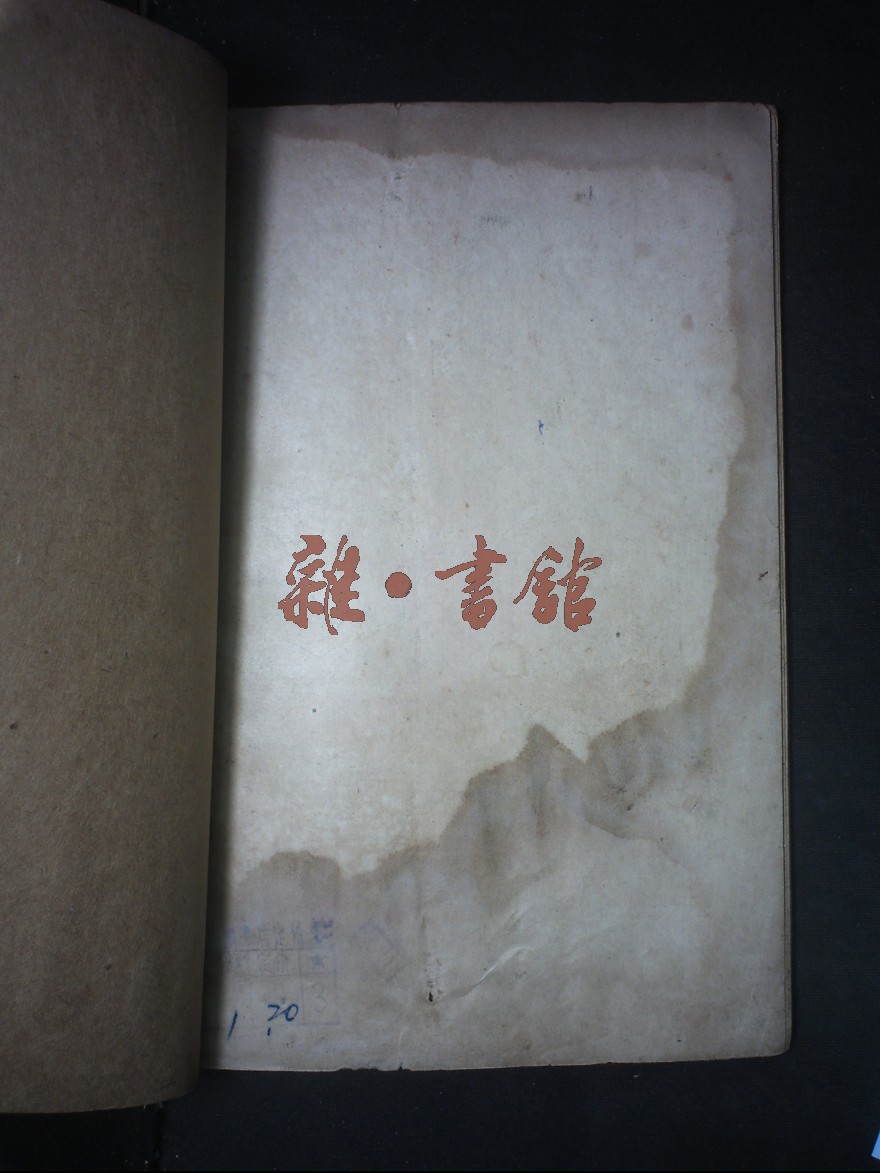 雜·書館
1 20